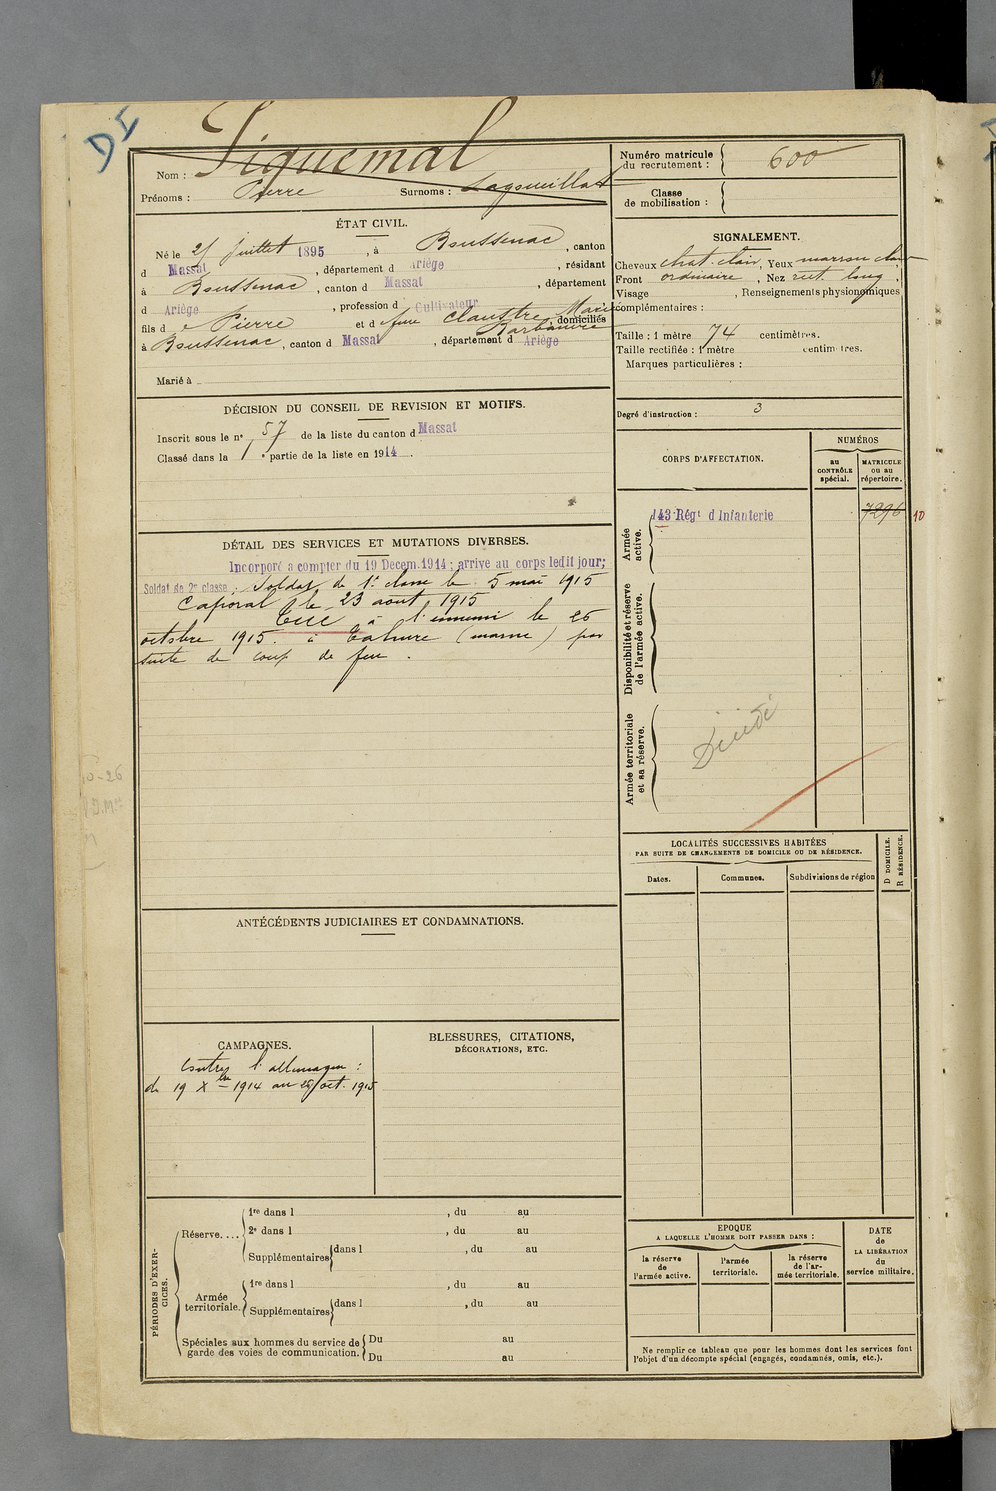 DI
Nom : Piquemal
Prénoms : Pierre Surnoms :
Numéro matricule du recrutement : 600
Classe de mobilisation :
ÉTAT CIVIL.
Né le 25 juillet 1895, à Boussenac, canton
d Massat, département d Ariège, résidant
à Boussenac, canton d Massat, département
d Ariège, profession d Cultivateur
fils d e Pierre et d e feue Claustre Marie Barbouvre, domiciliés
à Boussenac, canton d Massat, département d Ariège
Marié à
SIGNALEMENT.
Cheveux chat. clair, Yeux marron clair
Front ordinaire, Nez rect. long,
Visage , Renseignements physionomiques
complémentaires :
Taille : 1 mètre 74 centimètres.
Taille rectifiée : 1 mètre centimètres.
Marques particulières :
Degré d'instruction : 3
DÉCISION DU CONSEIL DE REVISION ET MOTIFS.
Inscrit sous le n° 57 de la liste du canton d Massat
Classé dans la 1e partie de la liste en 1914.
CORPS D'AFFECTATION.
NUMÉROS
au CONTRÔLE spécial.
MATRICULE ou au répertoire.
Armée active.
143e Régt d'Infanterie 7296 10
Disponibilité et réserve de l'armée active.
Armée territoriale et sa réserve.
Décédé
DÉTAIL DES SERVICES ET MUTATIONS DIVERSES.
Incorporé à compter du 19 Décem. 1914; arrivé au corps ledit jour;
Soldat de 2e classe. Soldat de 1e classe le 5 mai 1915
Caporal le 23 août 1915
Tué à l'ennemi le 26
octobre 1915 à Tahure (marne) par
suite de coup de feu.
LOCALITÉS SUCCESSIVES HABITÉES
PAR SUITE DE CHANGEMENTS DE DOMICILE OU DE RÉSIDENCE.
Dates. Communes. Subdivisions de région
D DOMICILE.
R RÉSIDENCE.
ANTÉCÉDENTS JUDICIAIRES ET CONDAMNATIONS.
CAMPAGNES.
Contre l'allemagne :
du 19 Xbre 1914 au 26 oct. 1915
BLESSURES, CITATIONS,
DÉCORATIONS, ETC.
PÉRIODES D'EXERCICES.
Réserve....
1re dans l , du au
2e dans l , du au
Supplémentaires dans l , du au
Armée territoriale.
1re dans l , du au
Supplémentaires dans l , du au
Spéciales aux hommes du service de garde des voies de communication.
Du au
Du au
EPOQUE
A LAQUELLE L'HOMME DOIT PASSER DANS :
la réserve de l'armée active.
l'armée territoriale.
la réserve de l'armée territoriale.
DATE de LA LIBÉRATION du service militaire.
Ne remplir ce tableau que pour les hommes dont les services font
l'objet d'un décompte spécial (engagés, condamnés, omis, etc.).